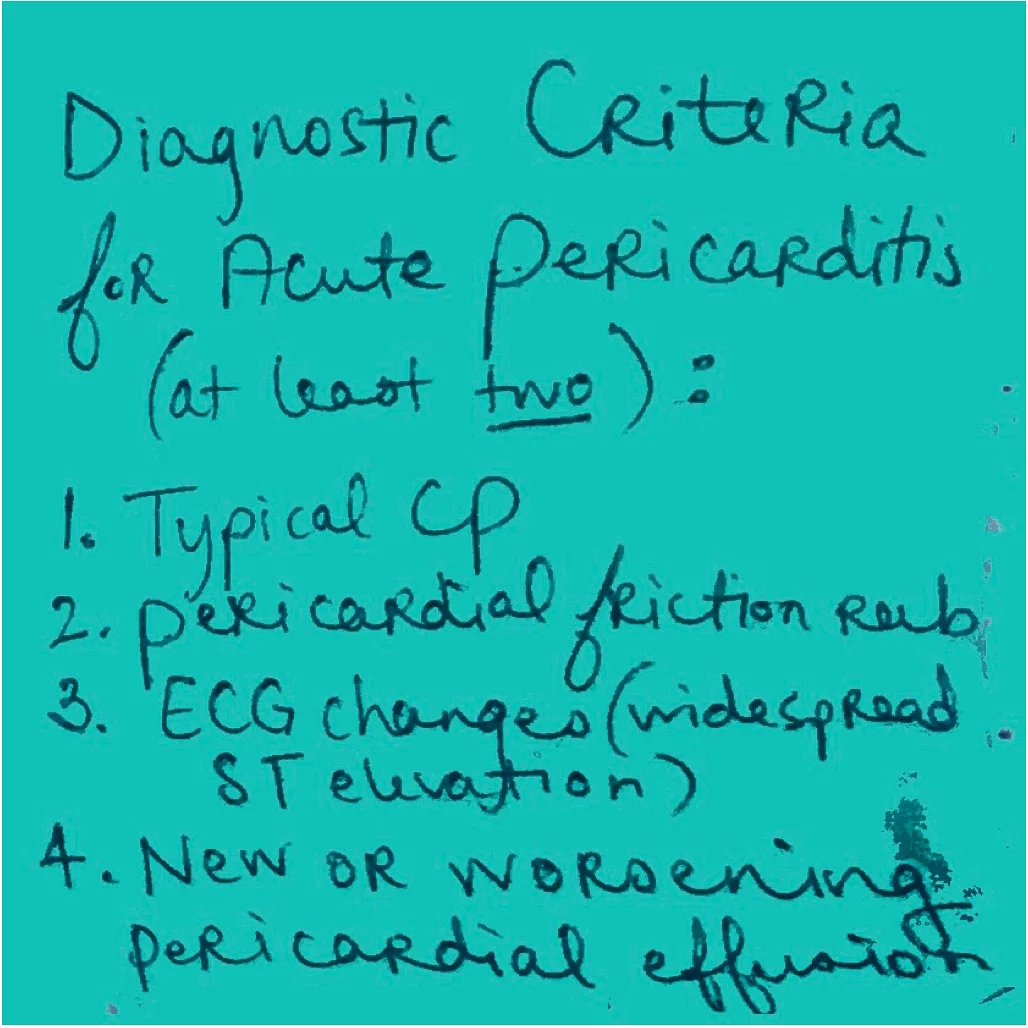 Diagnostic Criteria
for Acute pericarditis
(at least two):
1. Typical CP
2. pericardial friction rub
3. ECG changes (widespread
ST elevation)
4. New or worsening
pericardial effusion